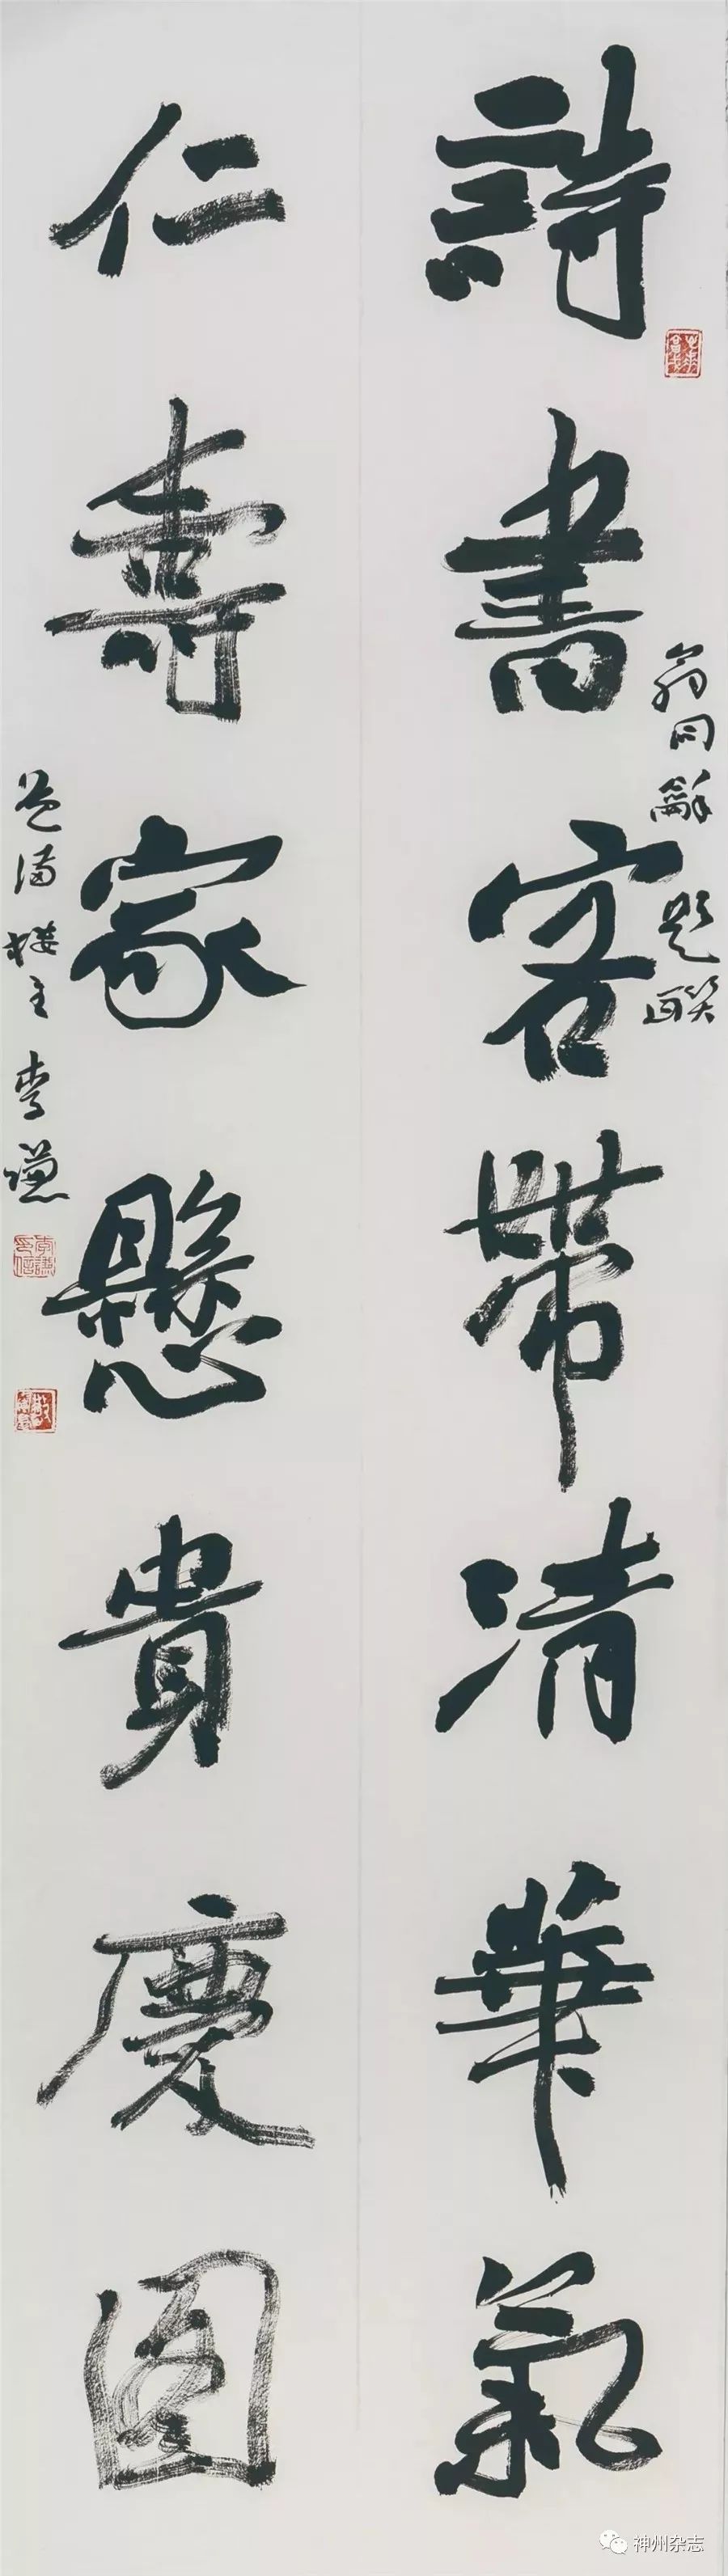 詩書客帶清華氣
翁同龢題聯
仁壽家懸貴慶圖
楼主李謙
李謙
神州杂志